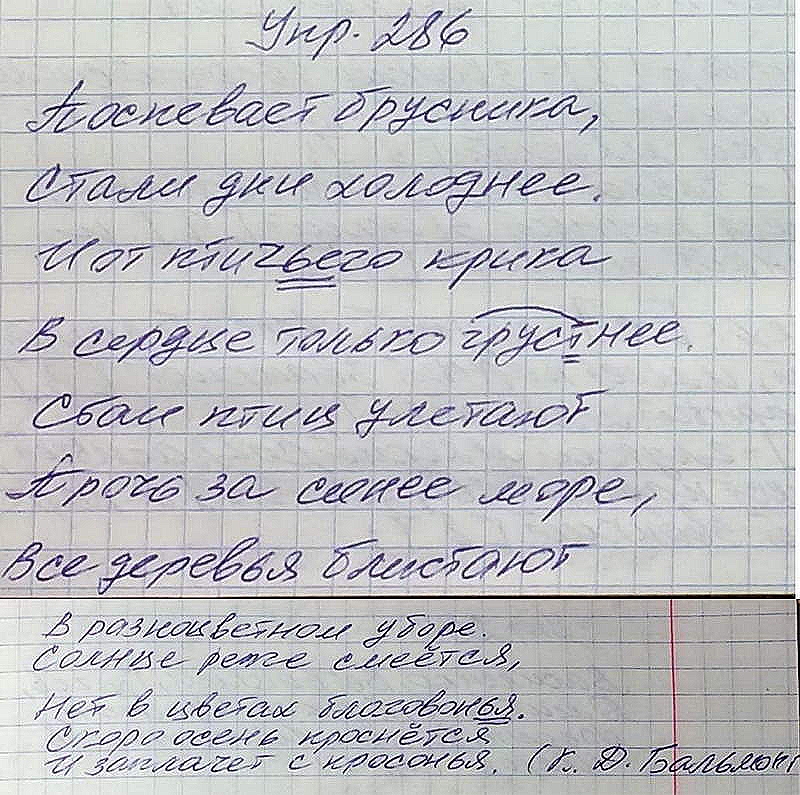 Упр. 286
Поспевает брусника,
Стали дни холоднее.
И от птичьего крика
В сердце только грустнее.
Стаи птиц улетают
Прочь за синее море,
Все деревья блистают
В разноцветном уборе.
Солнце реже смеётся,
Нет в цветах благовонья.
Скоро осень проснётся
И заплачет спросонья. (К. Д. Бальмонт